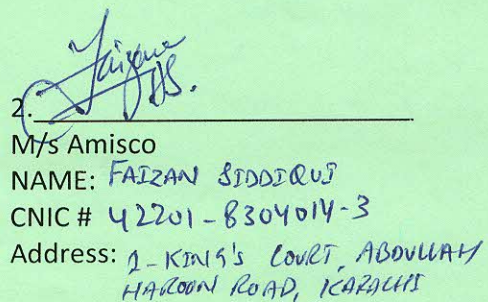 2.
M/s Amisco
NAME: FAIZAN SIDDIQUI
CNIC # 42201-8304014-3
Address: 1-KING'S COURT, ABDULLAH
HAROON ROAD, KARACHI